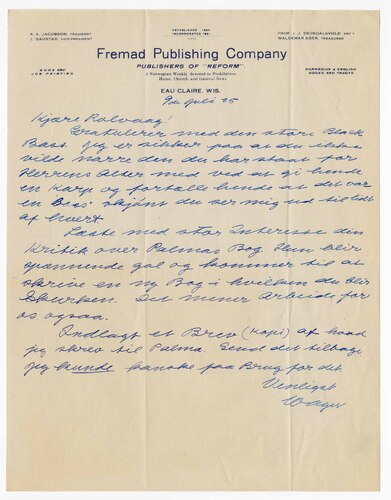 E. A. JACOBSON, PRESIDENT
J. GAUSTAD, VICE PRESIDENT
ESTABLISHED 1886
INCORPORATED
PROF. J. J. SKORDALSVOLD
WALDEMAR AGER, TREASURER
Fremad Publishing Company
PUBLISHERS OF "REFORM"
BOOK AND
JOB PRINTING
A Norwegian Weekly devoted to Prohibition,
Home, Church and General News
NORWEGIAN & ENGLISH
BOOKS AND TRACTS
EAU CLAIRE, WIS.
9de Juli 25
Kjære Rolvaag!
Gratulerer med den store Black
Bass. Jeg er sikker paa at du ikke
vilde narre den du har staat for
Herrens Alter med ved at gi hende
en Karp og fortælle hende at det var
en Bass skjønt du ser mig ud til lidt
af hvert.
Læste med stor Interesse din
Kritik over Palmas Bog. Hun blir
spændende gal og kommer til at
skrive en ny Bog i hvilken du blir
Skurken. Det mener Arbeide for
os ogsaa.
Indlagt et Brev (Kopi) af hvad
jeg skrev til Palma. Send det tilbage
jeg kunde kanske faa Brug for det.
Venligst
Wager